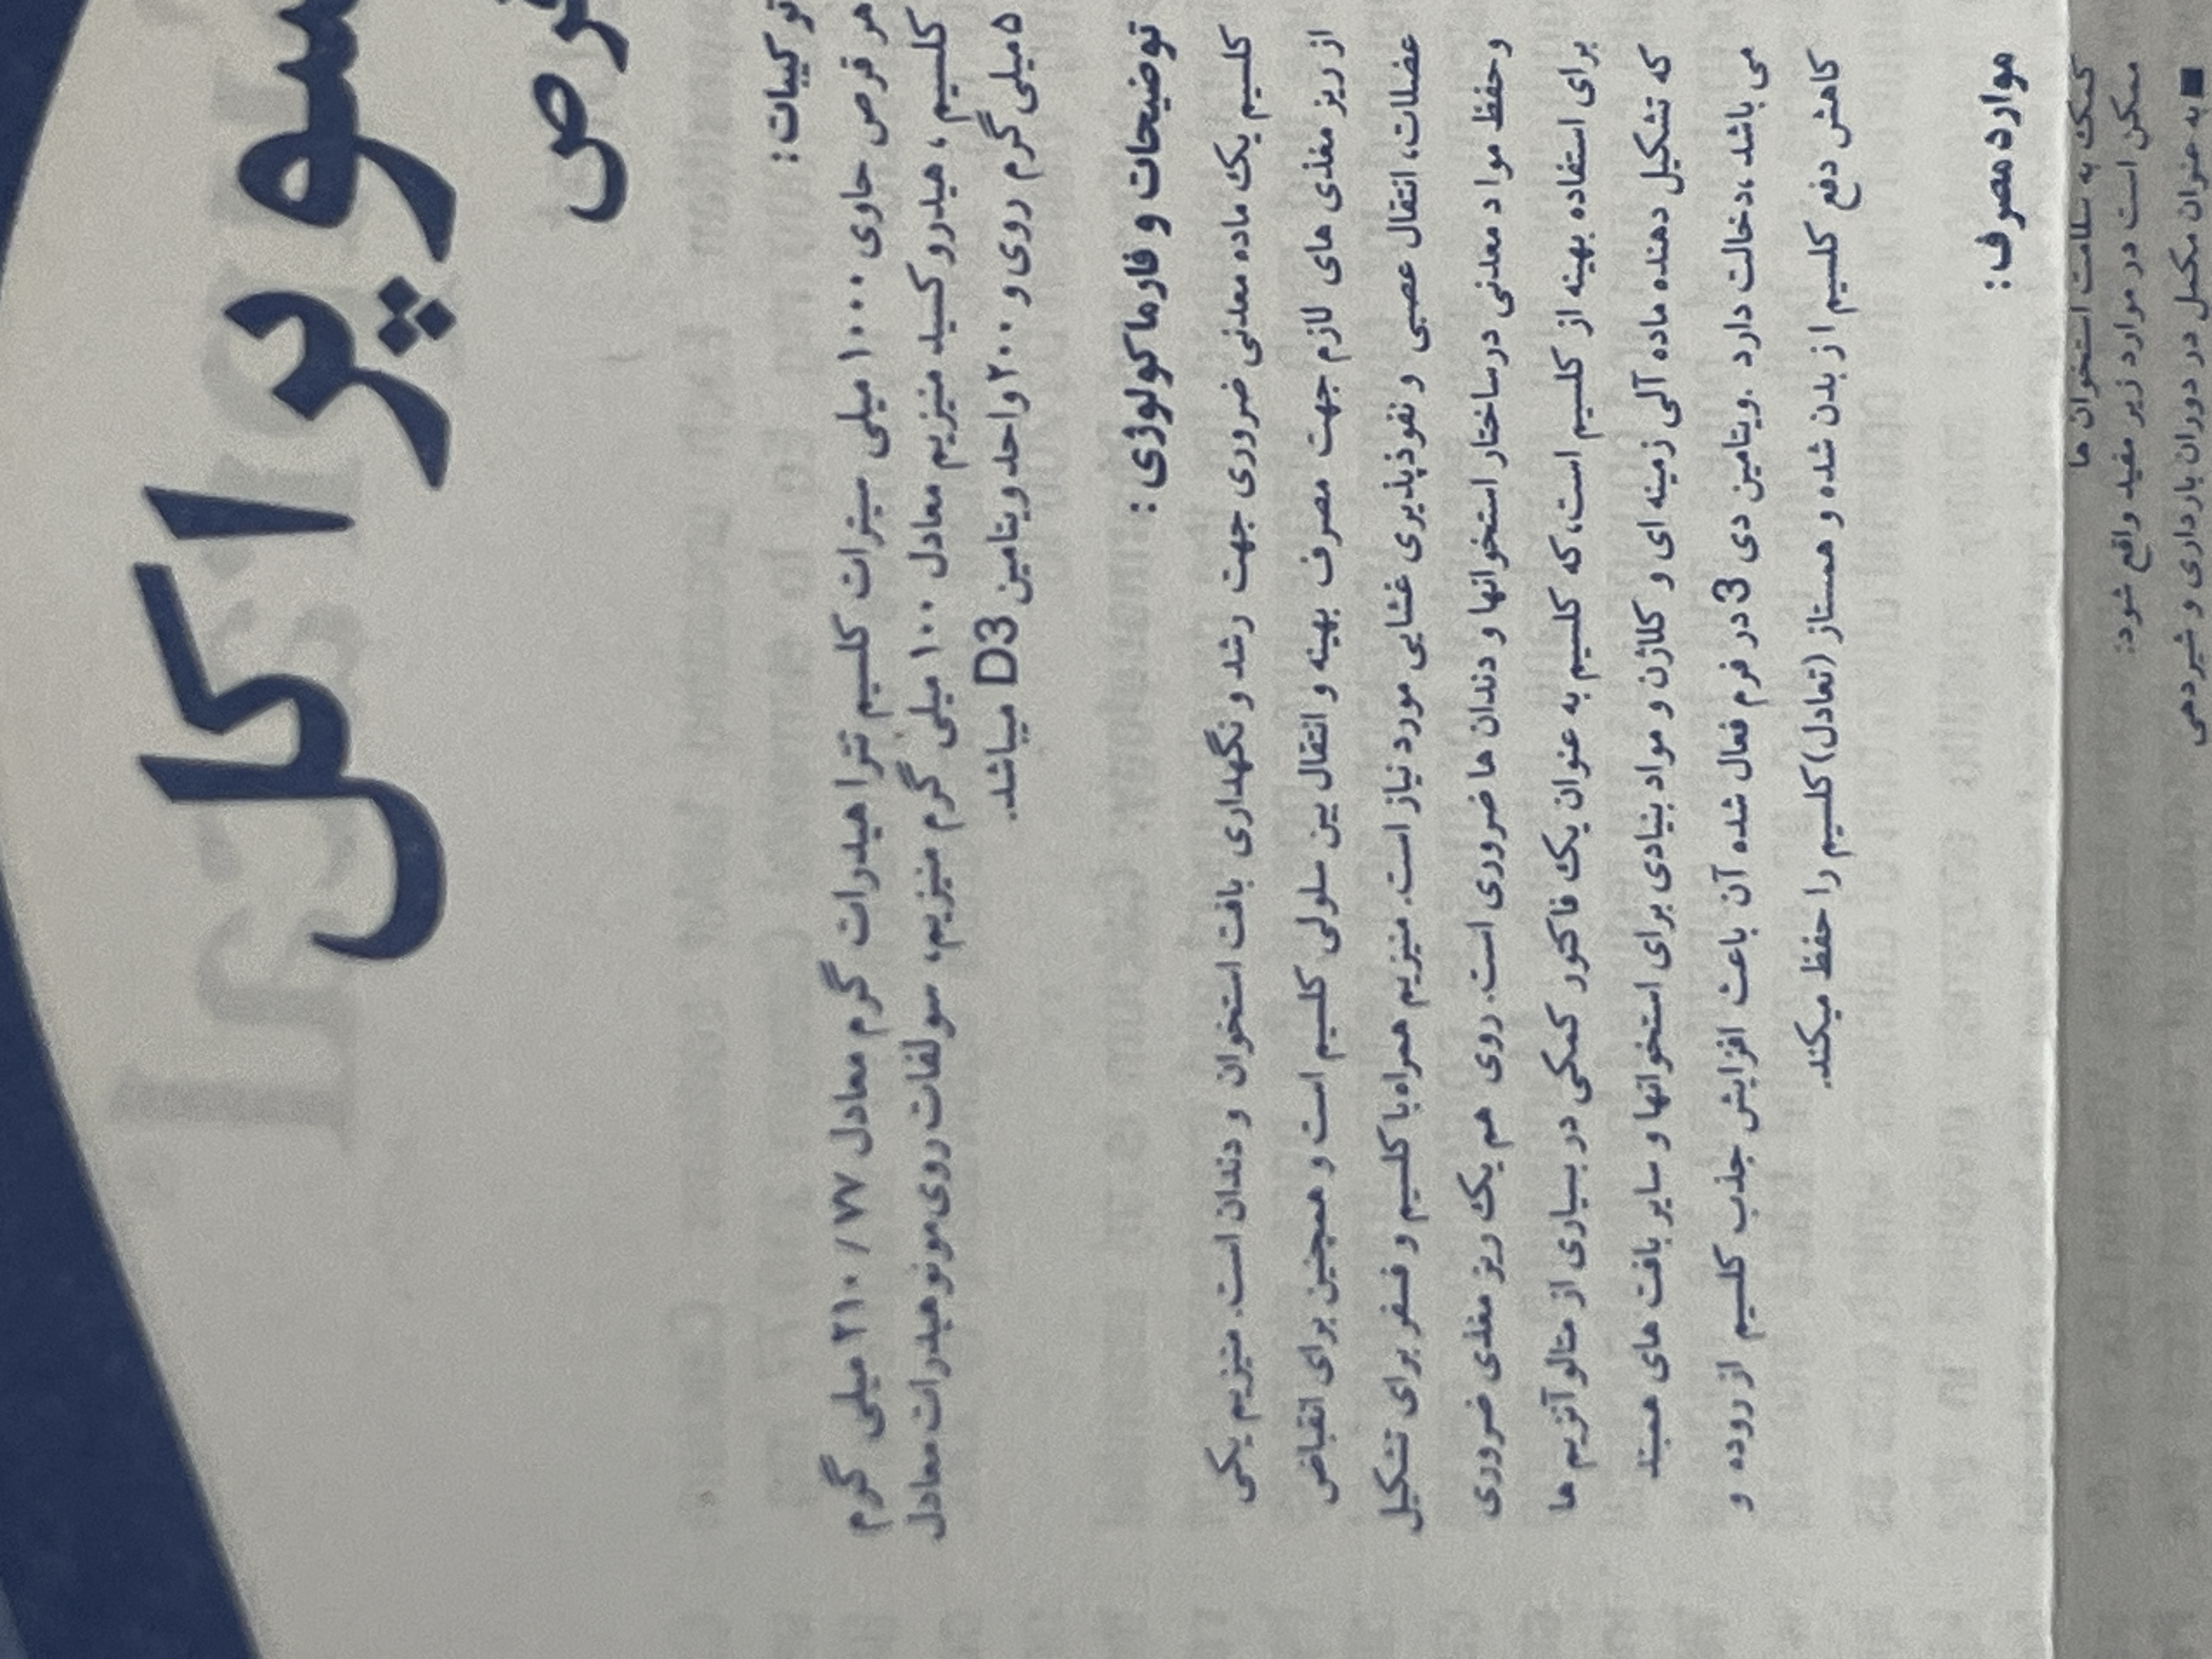 سوپراکل
قرص
ترکیبات:
هر قرص حاوی ۱۰۰۰ میلی سیترات کلسیم تترا هیدرات گرم معادل ۲۱۰/۷۷ میلی گرم
کلسیم، هیدروکسید منیزیم معادل ۱۰۰ میلی گرم منیزیم، سولفات روی مونوهیدرات معادل
۵ میلی گرم روی و ۲۰۰ واحد ویتامین D3 میباشد.
توضیحات و فارماکولوژی:
کلسیم یک ماده معدنی ضروری جهت رشد و نگهداری بافت استخوان و دندان است. منیزیم یکی
از ریز مغذی های لازم جهت مصرف بهینه و انتقال بین سلولی کلسیم است و همچنین برای انقباض
عضلات، انتقال عصبی و نفوذپذیری غشایی مورد نیاز است. منیزیم همراه با کلسیم و فسفر برای تشکیل
و حفظ مواد معدنی در ساختار استخوانها و دندان ها ضروری است. روی هم یک ریز مغذی ضروری
برای استفاده بهینه از کلسیم است، که کلسیم به عنوان یک فاکتور کمکی در بسیاری از متالوآنزیم ها
که تشکیل دهنده ماده آلی زمینه ای و کلاژن و مواد بنیادی برای استخوانها و سایر بافت های همبند
می باشد ،دخالت دارد .ویتامین دی 3 در فرم فعال شده آن باعث افزایش جذب کلسیم از روده و
کاهش دفع کلسیم از بدن شده و همستاز (تعادل) کلسیم را حفظ میکند.
موارد مصرف:
کمک به سلامت استخوان ها
ممکن است در موارد زیر مفید واقع شود:
■ به عنوان مکمل در دوران بارداری و شیردهی